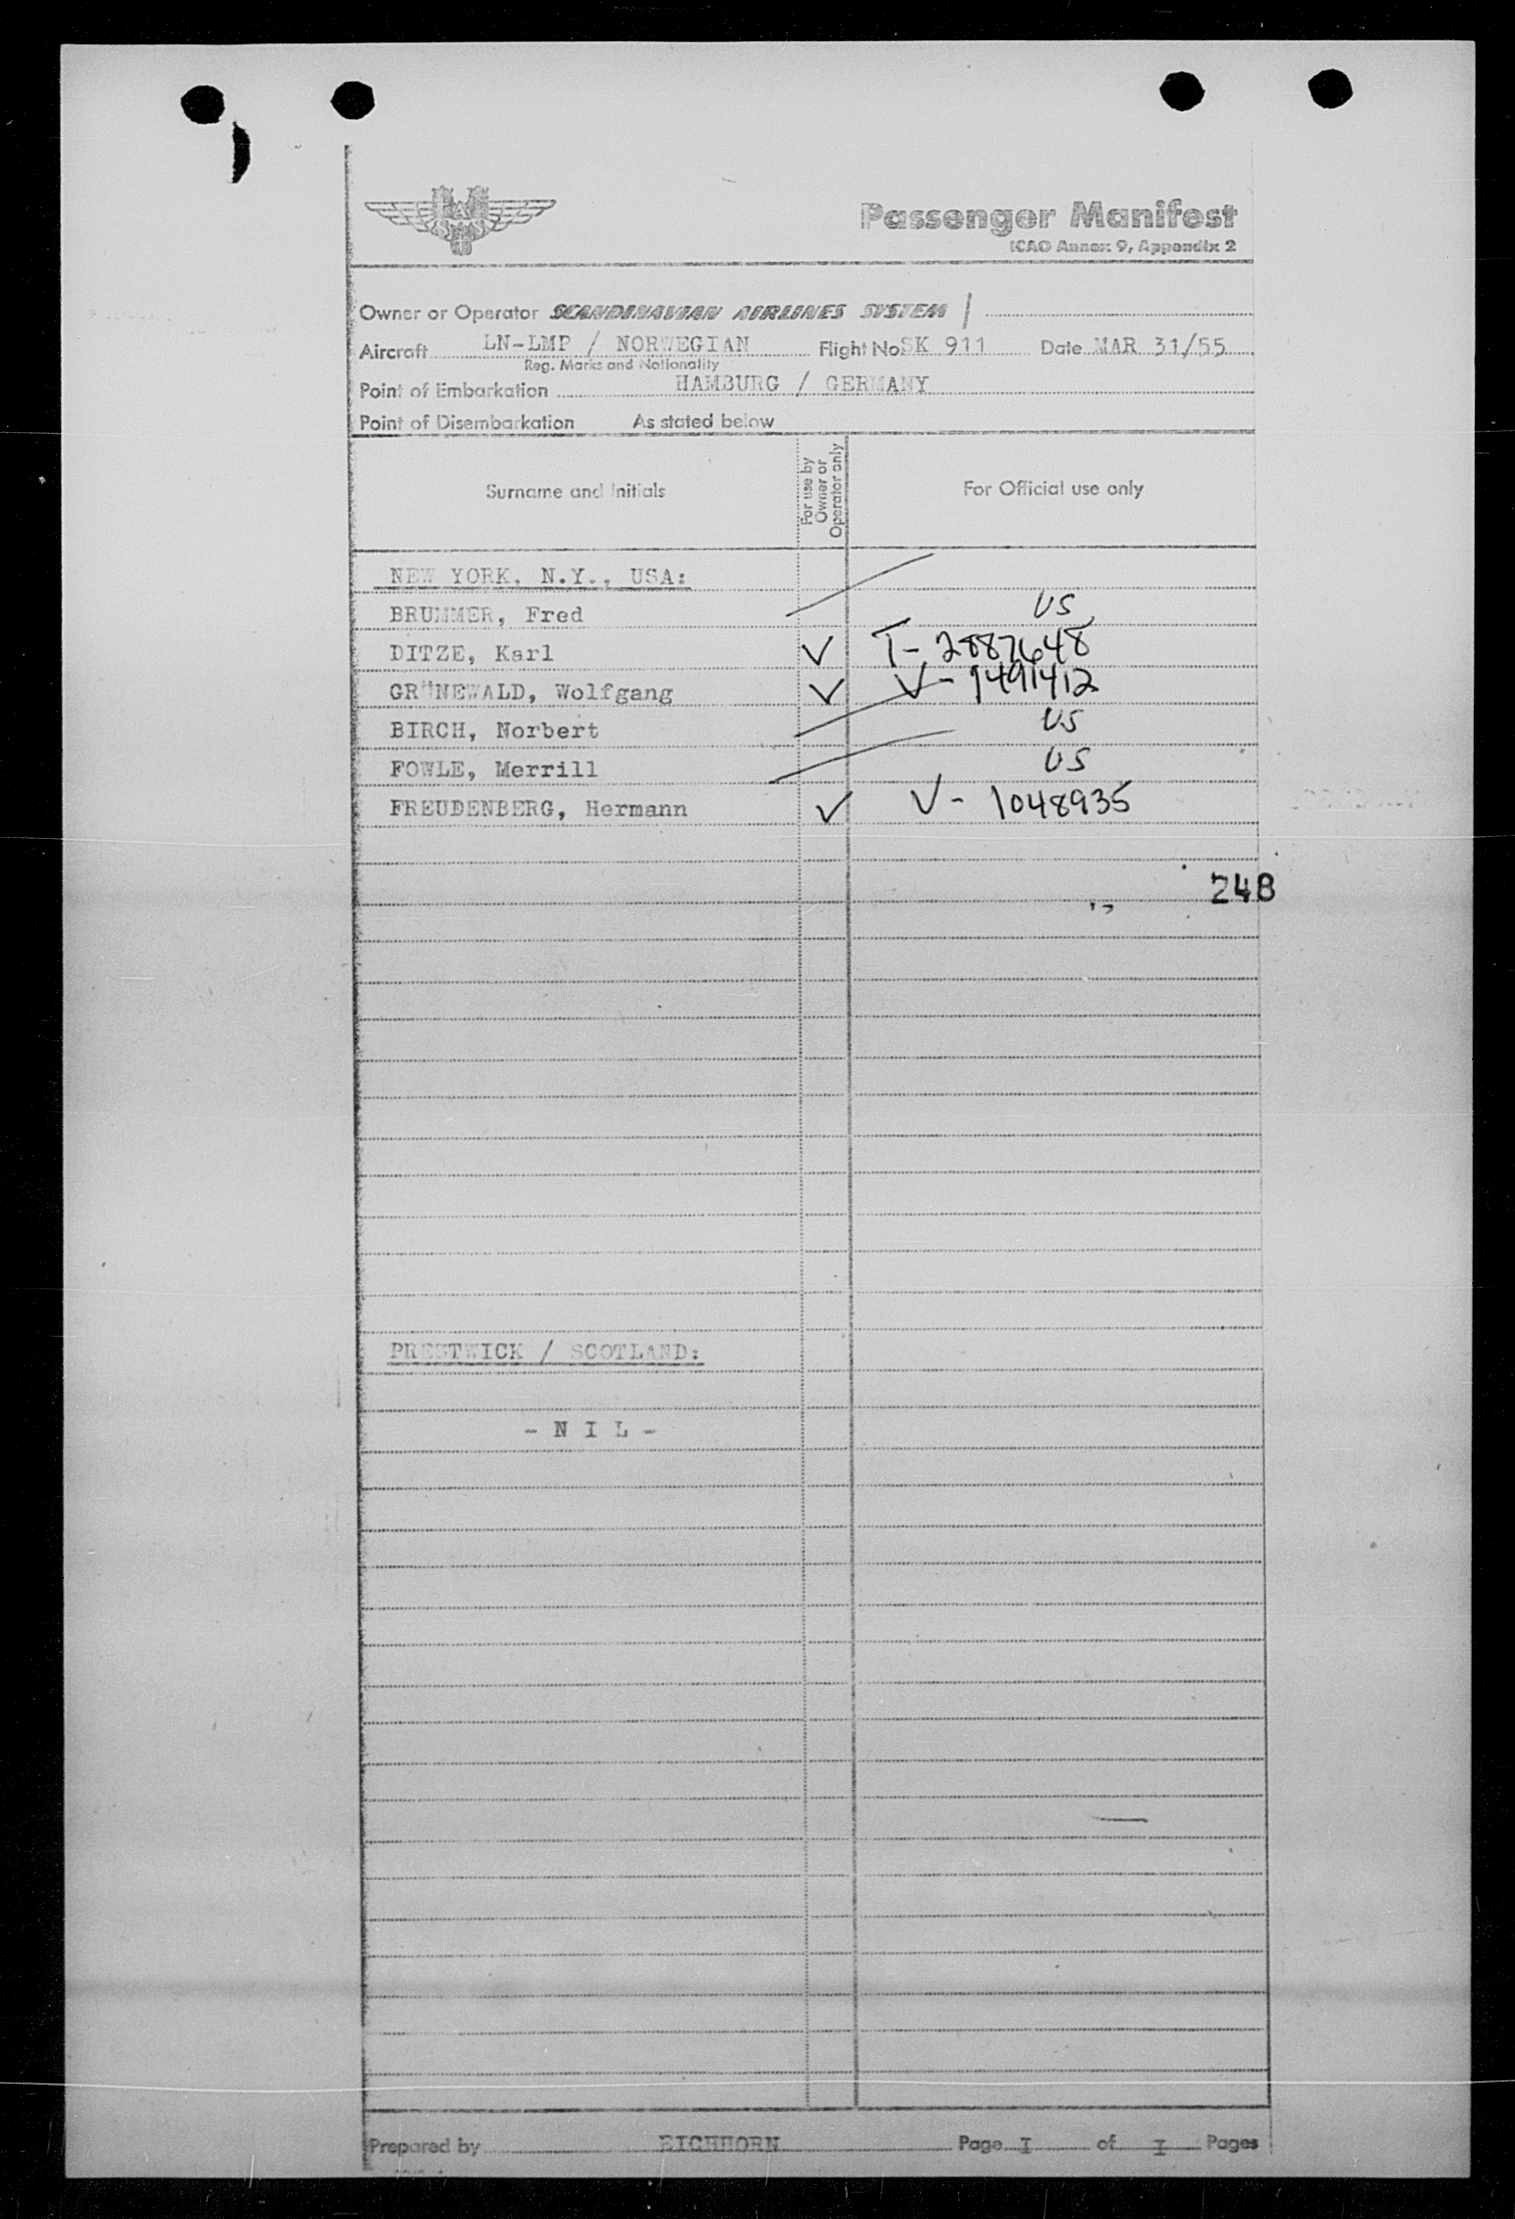 Passenger Manifest
ICAO Annex 9, Appendix 2
Owner or Operator SCANDINAVIAN AIRLINES SYSTEM
Aircraft LN-LMP / NORWEGIAN Flight No SK 911 Date MAR 31/55
Reg. Marks and Nationality
Point of Embarkation HAMBURG / GERMANY
Point of Disembarkation As stated below
Surname and Initials For use by Owner or Operator only For Official use only
NEW YORK, N.Y., USA:
BRUMMER, Fred US
DITZE, Karl T-2887648
GRÜNEWALD, Wolfgang V-1491412
BIRCH, Norbert US
FOWLE, Merrill US
FREUDENBERG, Hermann V-1048935
248
PRESTWICK / SCOTLAND:
- N I L -
Prepared by EICHHORN Page I of I Pages